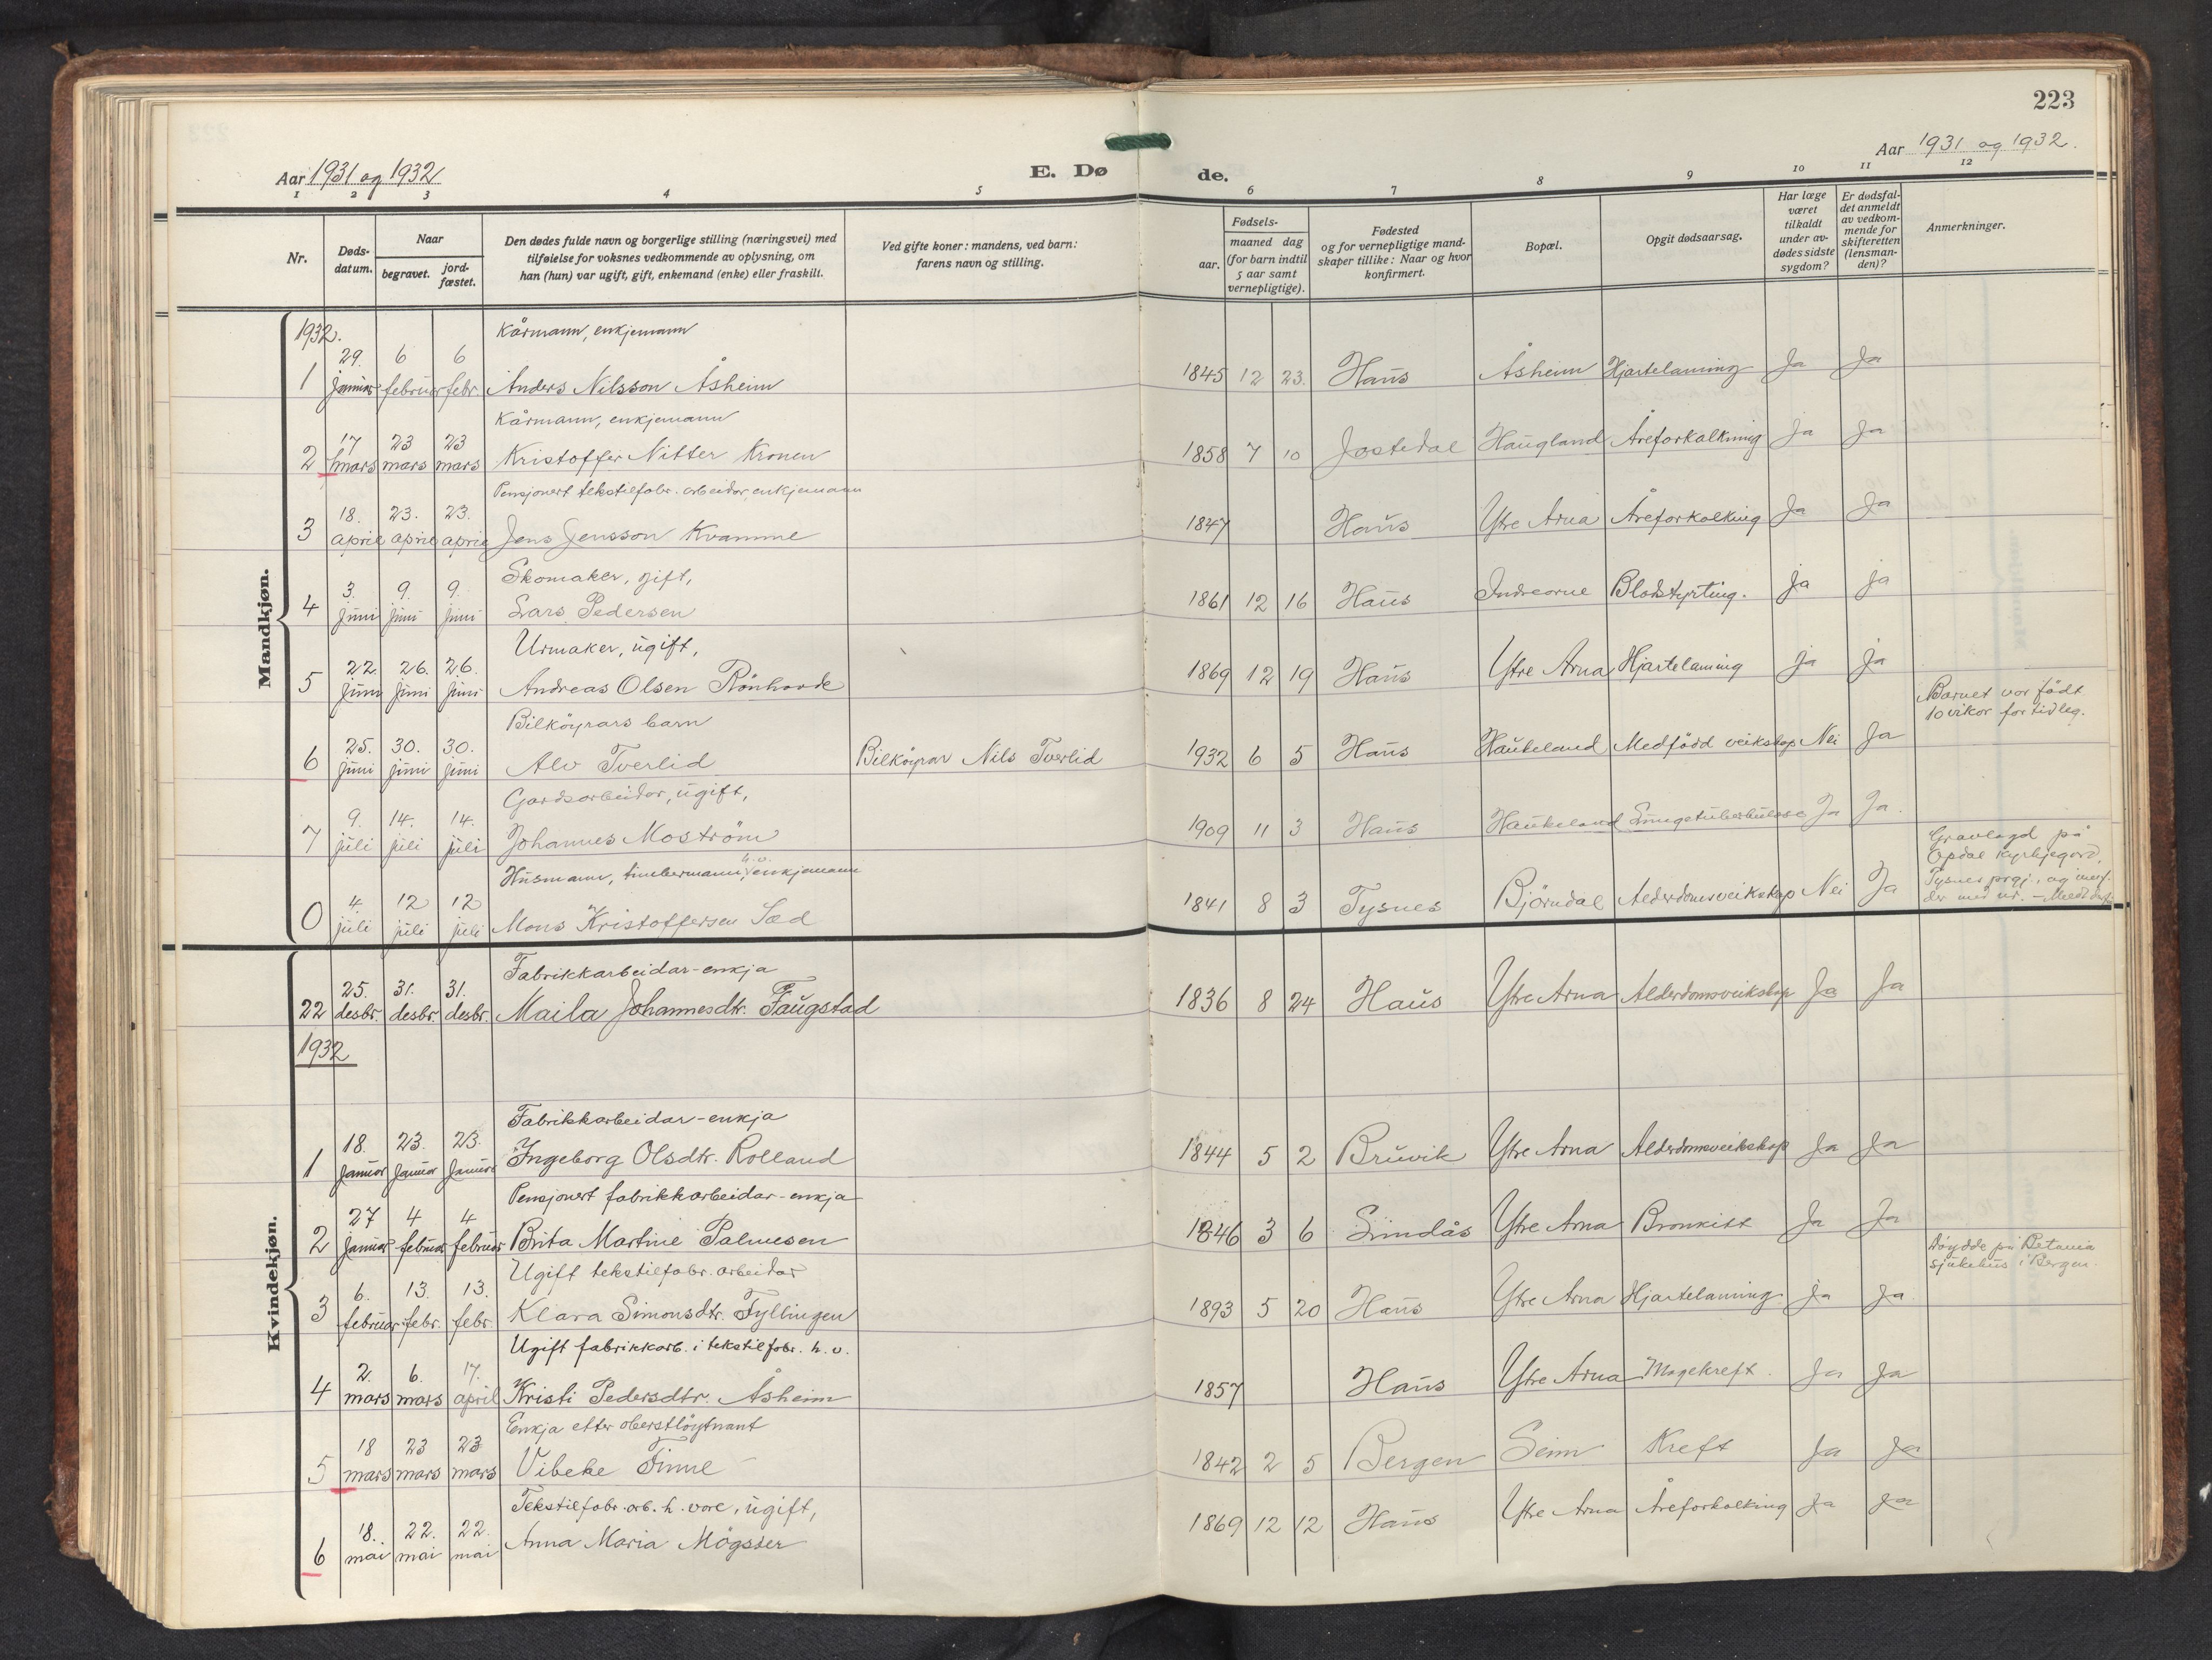 223
Aar 1931 og 1932
E. Dø
de.
Aar 1931 og 1932.
1 2 3 4 5 6 7 8 9 10 11 12
Nr.
Døds-
datum.
Naar
begravet.
jord-
fæstet.
Den dødes fulde navn og borgerlige stilling (næringsvei) med
tilføielse for voksnes vedkommende av oplysning, om
han (hun) var ugift, gift, enkemand (enke) eller fraskilt.
Ved gifte koner: mandens, ved barn:
farens navn og stilling.
Fødsels-
aar.
maaned dag
(for barn indtil
5 aar samt
vernepligtige).
Fødested
og for vernepligtige mand-
skaper tillike: Naar og hvor
konfirmert.
Bopæl.
Opgit dødsaarsag.
Har læge
været
tilkaldt
under av-
dødes sidste
sygdom?
Er dødsfal-
det anmeldt
av vedkom-
mende for
skifteretten
(lensman-
den)?
Anmerkninger.
Mandkjøn.
1932.
Kårmann, enkjemann
1 29. januar 6 februar 6 febr. Anders Nilsson Åsheim 1845 12 23. Haus Åsheim Hjartelaming Ja Ja
Kårmann, enkjemann
2 17 mars 23 mars 23 mars Kristoffer Nitter Kronen 1858 7 10 Jostedal Haugland Åreforkalkning Ja Ja
Pensjonert tekstilfabr. arbeidar, enkjemann
3 18. april 23. april 23. april Jens Jensson Kvamme 1847 Haus Ytre Arna Åreforkalking Ja Ja
Skomaker, gift,
4 3. juni 9. juni 9. juni Lars Pedersen 1861 12 16 Haus Indrearne Blodstyrting. Ja Ja
Urmaker, ugift,
5 22. juni 26. juni 26. juni Andreas Olsen Rönhovde 1869 12 19 Haus Ytre Arna Hjartelaming Ja Ja
Barnet var födt
10 vikor for tidleg.
Bilköyrars barn
6 25. juni 30. juni 30. juni Alv Tverlid Bilköyrar Nils Tverlid 1932 6 5 Haus Haukeland Medfödd veikskap Nei Ja
Gardsarbeidar, ugift,
7 9. juli 14. juli 14. juli Johannes Moström 1909 11 3 Haus Haukeland Lungetuberkulose Ja Ja.
Gravlagd på
Opdal kyrkjegard,
Tysnes prgj., og
Husmann, timbermann, h.v. enkjemann
0 4. juli 12 juli 12 juli Mons Kristoffersen Sæd 1841 8 3 Tysnes Björndal Alderdomsveikskap Nei Ja
Kvindekjøn.
Fabrikkarbeidar-enkja
22 25. desbr. 31. desbr. 31. desbr. Maila Johannesdtr. Faugstad 1836 8 24 Haus Ytre Arna Alderdomsveikskap Ja Ja
1932
Fabrikkarbeidar-enkja
1 18. januar 23. januar 23. januar Ingeborg Olsdtr. Rolland 1844 5 2 Bruvik Ytre Arna Alderdomsveikskap Ja Ja
Pensjonert fabrikkarbeidar-enkja
2 27 januar 4 februar 4 februar Brita Martine Palmesen 1846 3 6 Lindås Ytre Arna Bronkitt Ja Ja
Döydde på Betania
sjukehus i Bergen.
Ugift tekstilfabr. arbeidar
3 6. februar 13. febr. 13. febr. Klara Simonsdtr. Fyllingen 1893 5 20 Haus Ytre Arna Hjartelaming Ja Ja
Ugift fabrikkarb. i tekstilfabr. h. v.
4 2. mars 6. mars 17. april Kristi Pedersdtr. Åsheim 1857 Haus Ytre Arna Magekreft. Ja Ja
Enkja etter oberstlöytnant
5 18 mars 23 mars 23 mars Vibeke Finne 1842 2 5 Bergen Seim Kreft Ja Ja
Tekstilfabr. arb. h. vore, ugift,
6 18. mai 22. mai 22. mai Anna Maria Mögster 1869 12 12 Haus Ytre Arna Åreforkalking Ja Ja